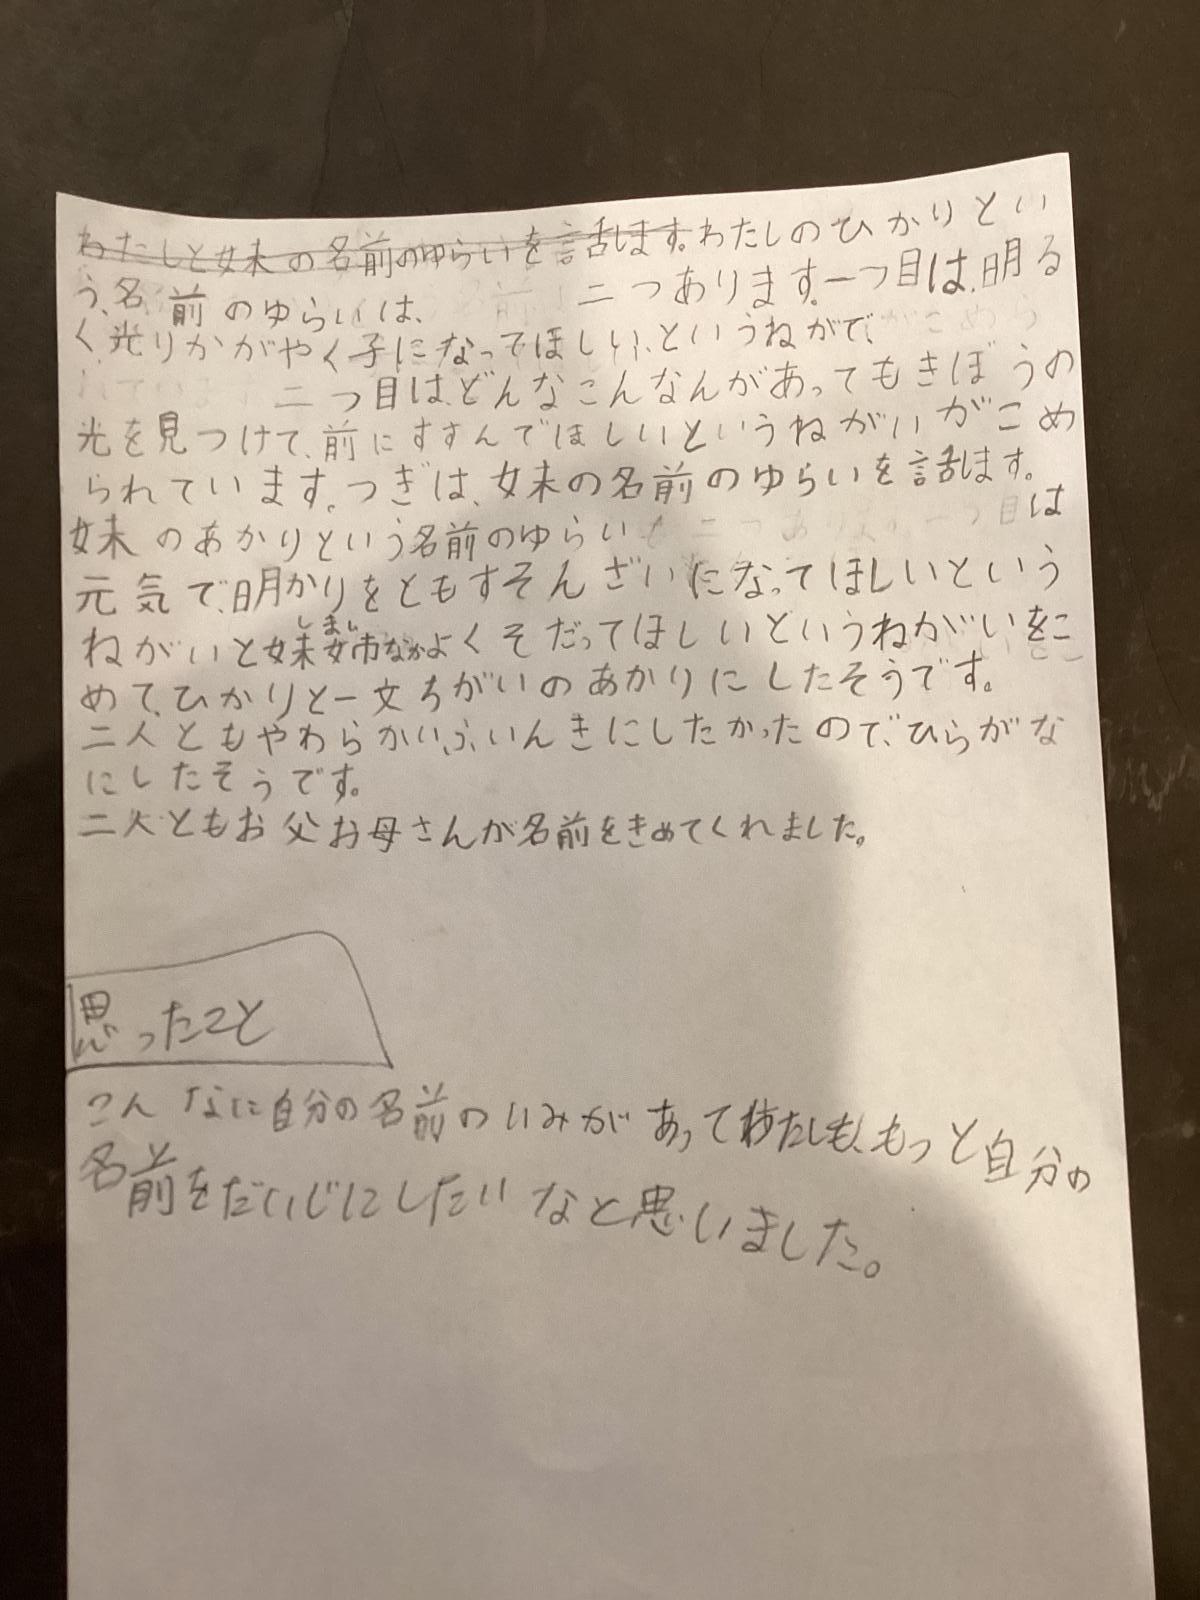 わたしと妹の名前のゆらいを話します。わたしのひかりとい
う、名前のゆらいは、二つあります。一つ目は、明る
く、光りかがやく子になってほしい、というねがで、
二つ目は、どんなこんなんがあってもきぼうの
光を見つけて、前にすすんでほしいというねがいがこめ
られています。つぎは、妹の名前のゆらいを話します。
妹のあかりという名前のゆらいは
元気で、明かりをともすそんざいになってほしいという
ねがいと妹姉なかよくそだってほしいというねがいをこ
しまい
めて、ひかりと一文ちがいのあかりにしたそうです。
二人ともやわらかいふいんきにしたかったので、ひらがな
にしたそうです。
二人ともお父お母さんが名前をきめてくれました。
思ったこと
こんなに自分の名前のいみがあってわたしも、もっと自分の
名前をだいじにしたいなと思いました。